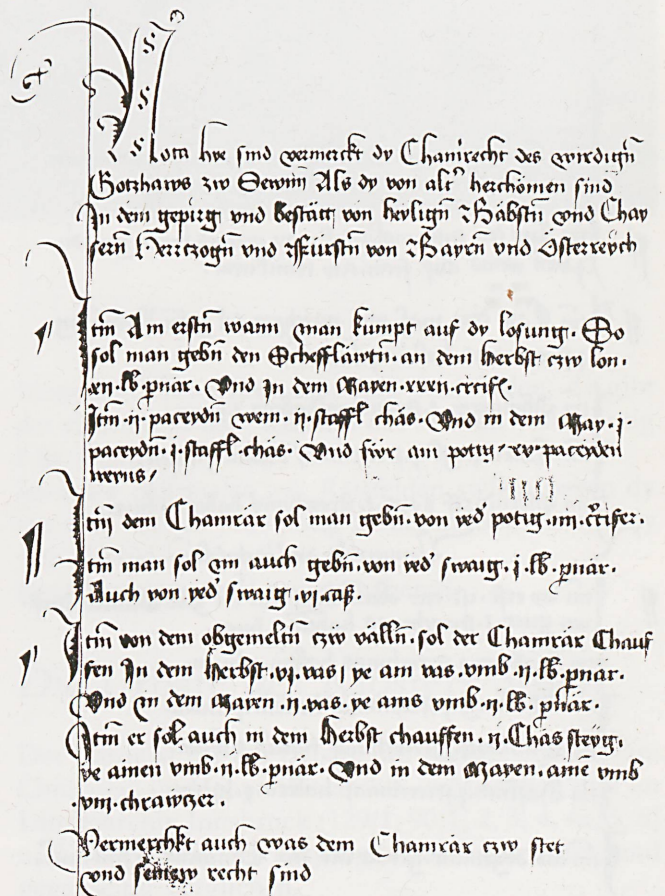 Nota hye sind vermerckt dy Chamrecht des wirdign̄
Gotzhaws zw Sewnn Als dy von alt' herchömen sind
In dem gepirg vnd bestätt von heylign̄ Bäbstn̄ vnd Chay
sern̄ herrczogn̄ vnd Fürstn̄ von Bayrn̄ vnd Österreych
Itm̄ Am erstn̄ wann man kumpt auf dy losung. So
sol man gebn̄ den Schefflärtn̄. an dem herbst czw lon.
xii. lb. pnär. Vnd In dem Mayen. xxxii. crcif.
Itm̄. ii. paceydn̄ wein. ii. staffl chäs. Vnd in dem May. j.
paceydn̄. j. staffl. chäs. Vnd für am potig xv. paceyden
weins
Itm̄ dem Chamrär sol man gebn̄. von yed' potig. iiii. crcifer.
Itm̄ man sol im auch gebn̄. von yed' swaig. j. lb. pnär.
Auch von yed' swaig. vi. cäß.
Itm̄ von dem obgemeltn̄ czw välln̄. sol der Chamrär Chauf
fen In dem herbst. vi. vas ye am vas. vmb. ii. lb. pnär.
Vnd in dem Mayen. ii. vas. ye ains vmb. ii. lb. pnär.
Itm̄ er sol auch in dem herbst chauffen. ii. Chässteyg.
ye ainen vmb. ii. lb. pnär. Vnd in dem Mayen. ainē vmb
.viii. chrawczer.
Vermerchkt auch was dem Chamrär czw stet
vnd recht sind